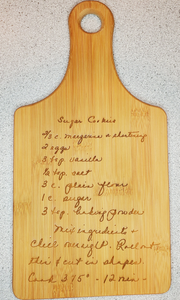 Sugar Cookies
2/3 c. margerine or shortning
2 eggs
3 tsp. vanilla
1/2 tsp. salt
3 c. plain flour
1 c. sugar
3 tsp. baking powder
Mix ingredients &
Chill overnight. Roll out
thin & cut in shapes.
Cook 375° - 12 min -